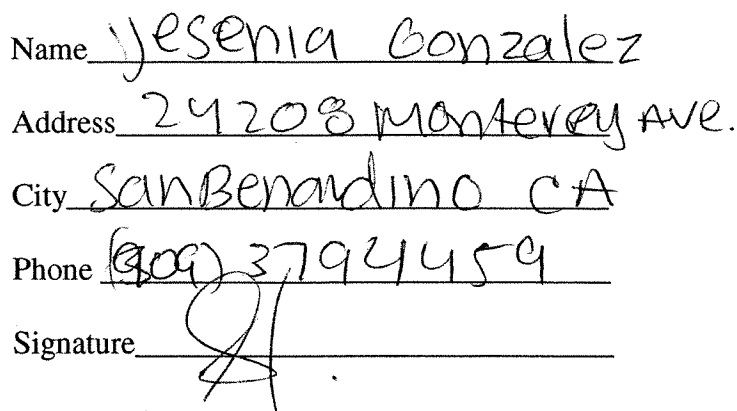 Name Yesenia Gonzalez
Address 24208 Monterey Ave.
City San Benardino CA
Phone (909) 3794459
Signature